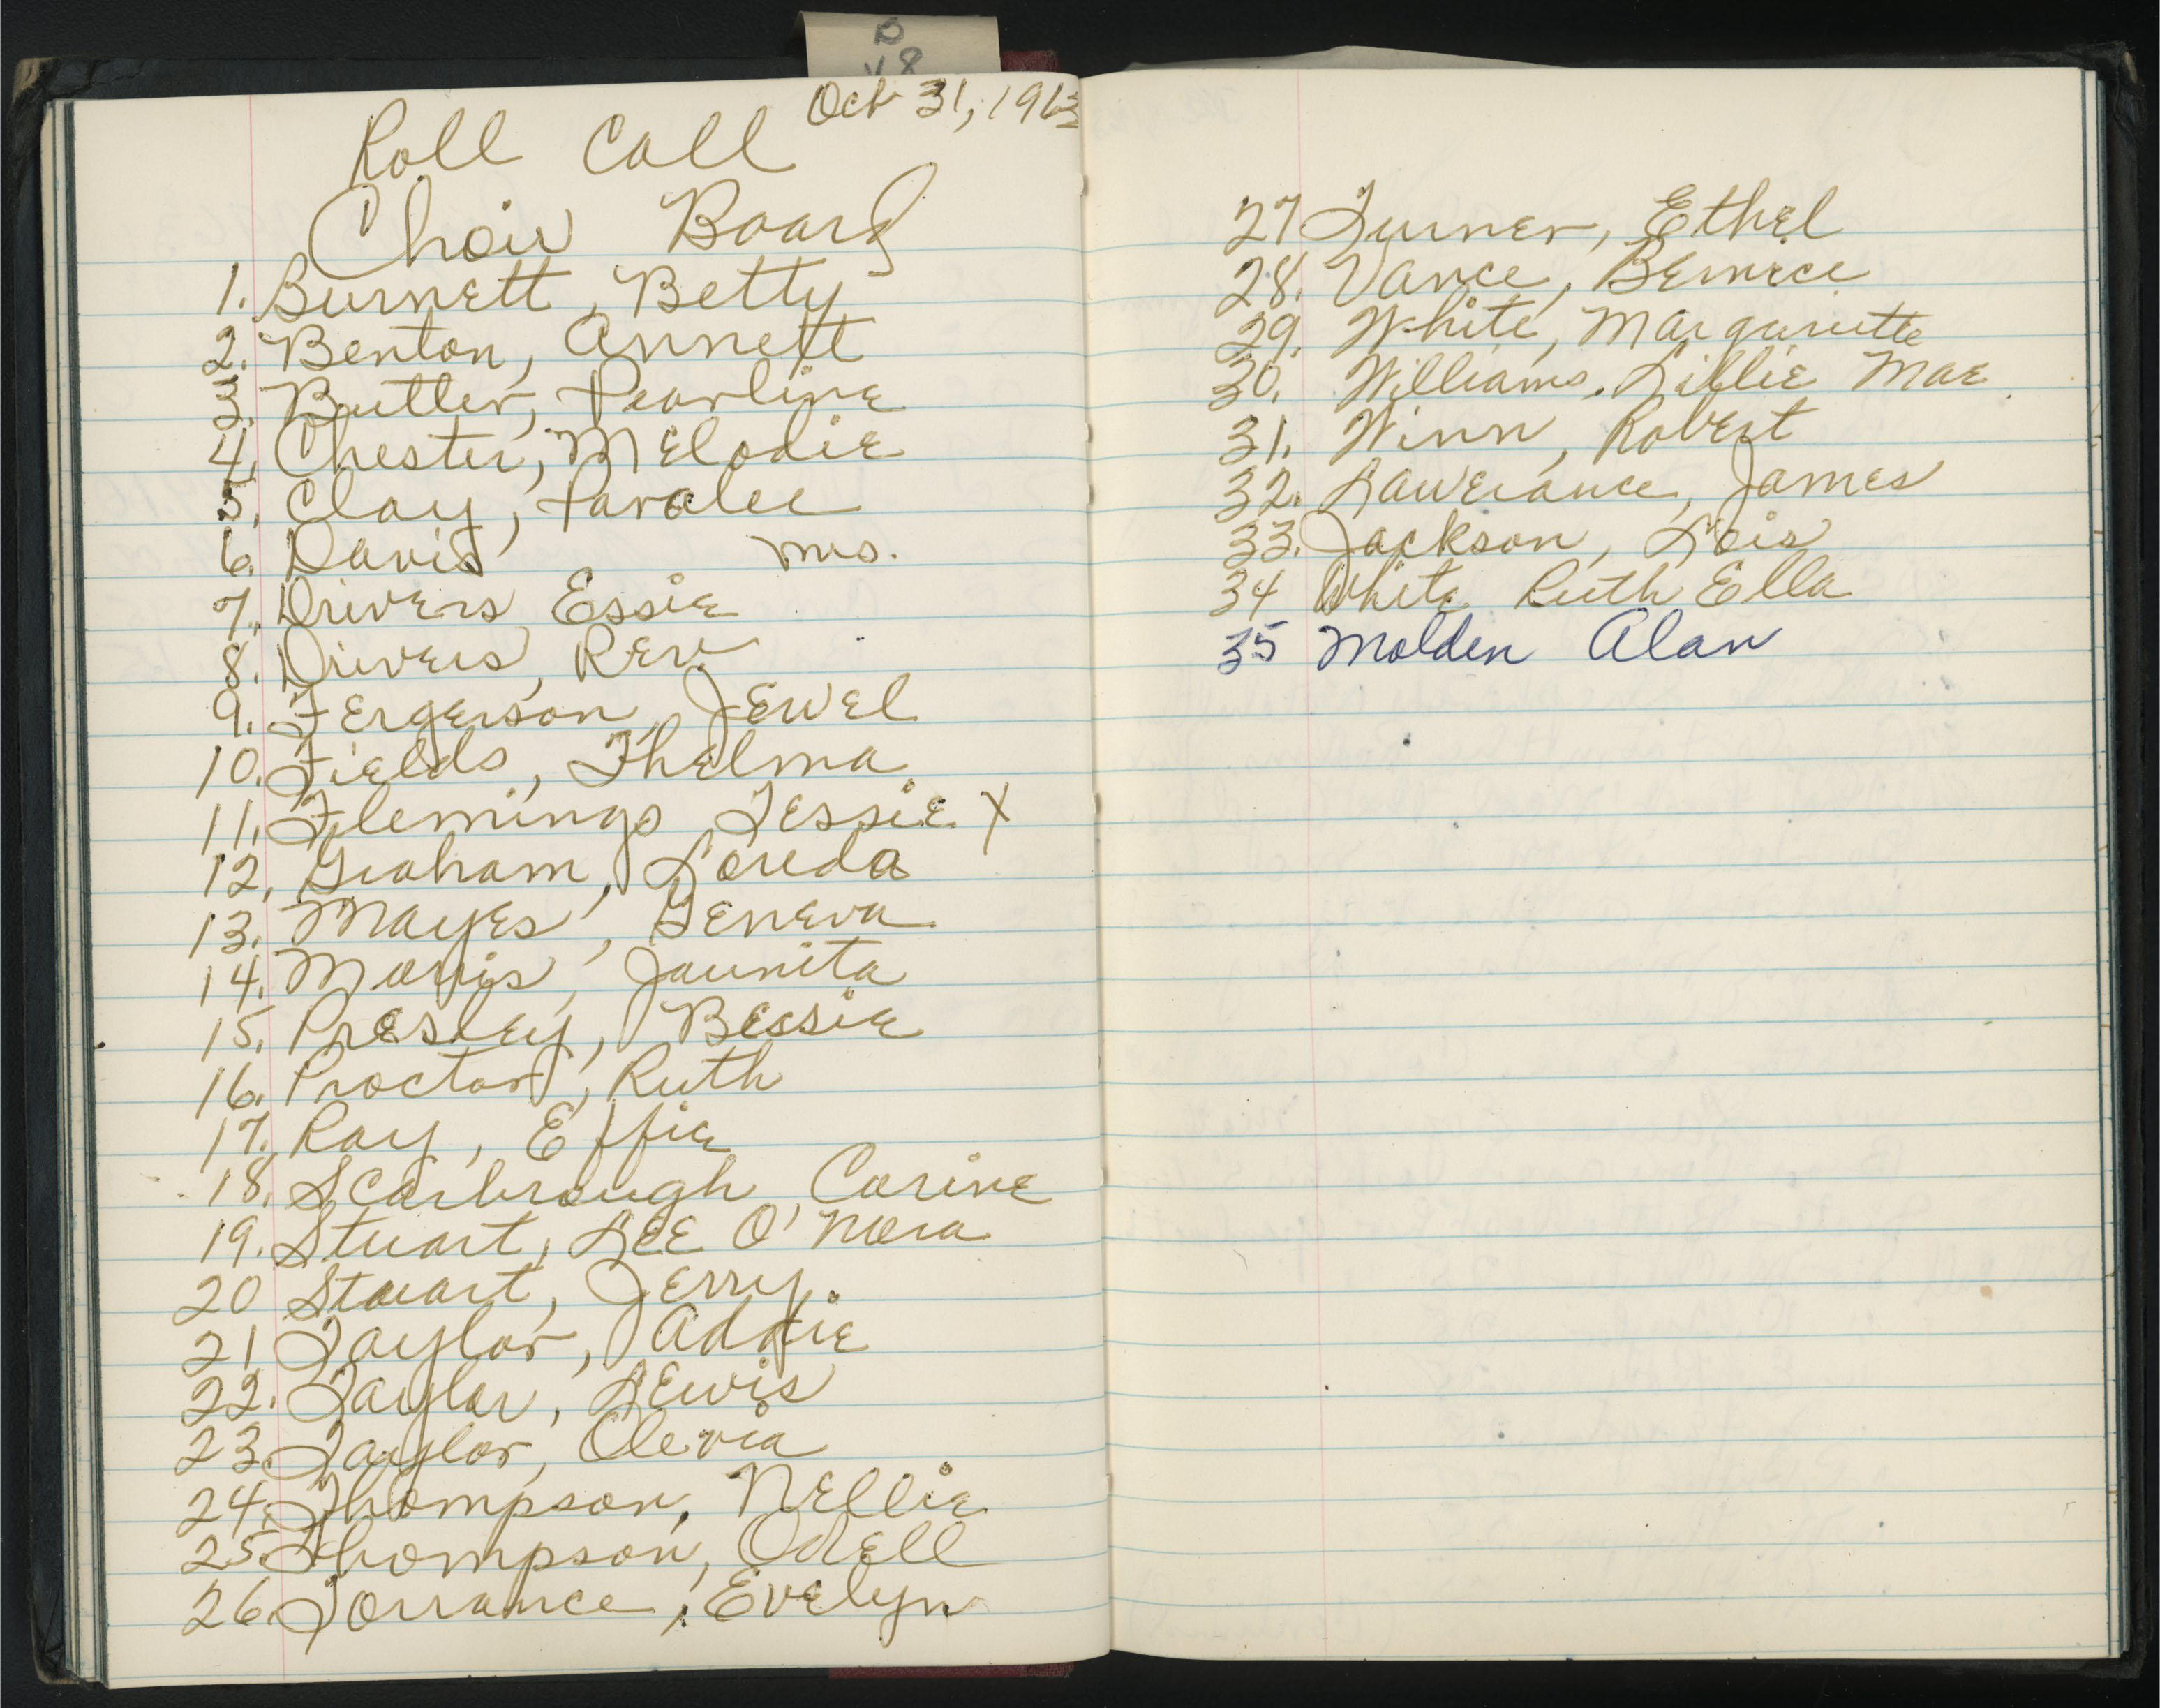 B
V8
Oct 31, 1963
Roll Call
Choir Board
1. Burnett, Betty
2. Benton, Annett
3. Butler, Pearline
4. Chester, Melodie
5. Clay, Paralee
6. Davis Mrs.
7. Drivers, Essie
8. Drivers, Rev
9. Fergerson, Jewel
10. Fields, Thelma
11. Flemings Tessie X
12. Graham, Loreda
13. Mayes, Geneva
14. Morris, Jaunita
15. Presley, Bessie
16. Proctor, Ruth
17. Ray, Effie
18. Scarbrough, Corine
19. Stuart, Lee O'Nora
20 Stuart, Jerry.
21 Taylor, Addie
22. Taylor, Lewis
23. Taylor, Olevia
24. Thompson, Nellie
25. Thompson, Odell
26. Torrance, Evelyn
27 Turner, Ethel
28. Vance, Bernece
29. White, Margariette
30. Williams, Lillie Mae
31. Winn, Robert
32. Lawerance, James
33. Jackson, Lois
34 White Ruth Ella
35 Molden Alan